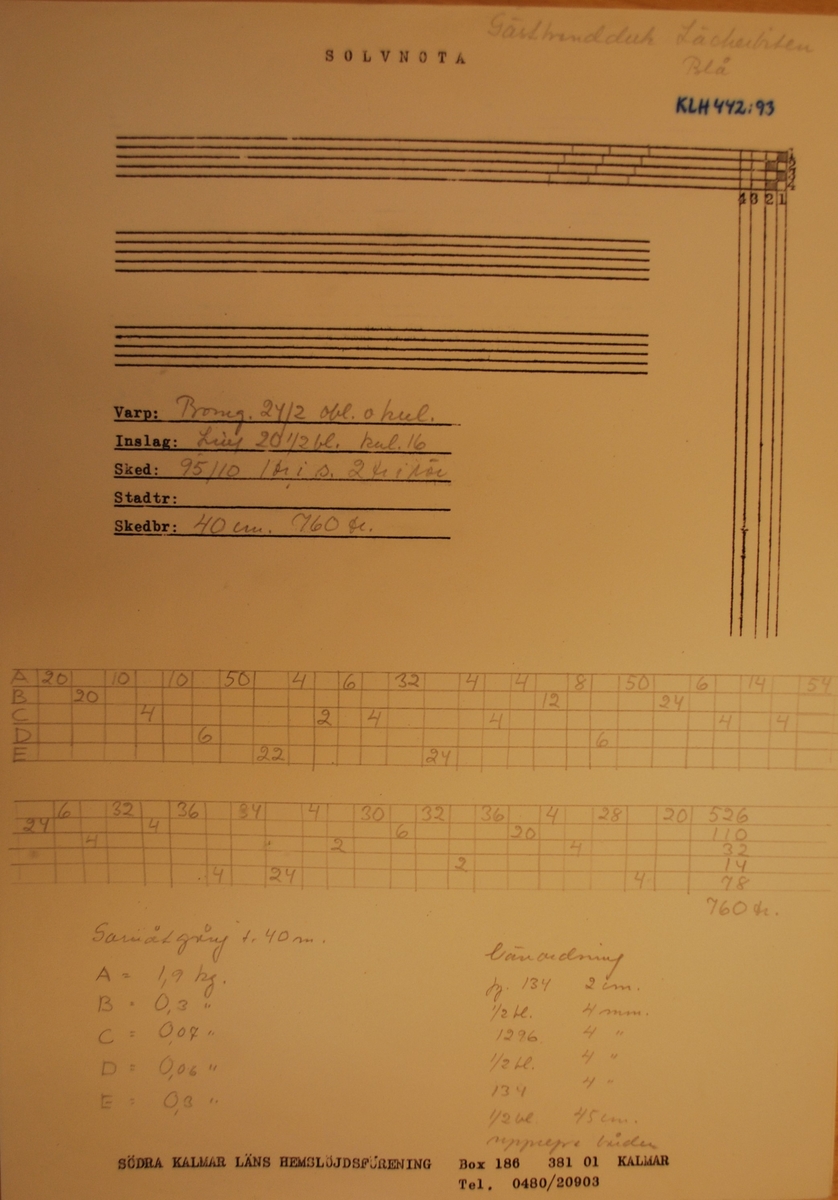 Gästhandduk Läckerbiten
SOLVNOTA
Blå
KLH 442:93
1
2
3
4
4 3 2 1
Varp: Bomg. 24/2 obl. o kul.
Inslag: Ling 20 1/2 bl. kul. 16
Sked: 95/10 1 tr i s. 2 tr i rör
Stadtr:
Skedbr: 40 cm. 760 tr.
A 20 10 10 50 4 6 32 4 4 8 50 6 14 54
B 20 12 24
C 4 2 4 4 4 4
D 6 6
E 22 24
6 32 36 34 4 30 32 36 4 28 20 526
24 4 6 20 110
4 2 4 32
2 14
4 24 4 78
760 tr.
Garnåtgång t. 40 m.
A = 1,9 kg.
B = 0,3 "
C = 0,07 "
D = 0,06 "
E = 0,3 "
134 2 cm.
1/2 bl. 4 mm.
1296 4 "
1/2 bl. 4 "
134 4 "
1/2 bl. 45 cm.
upprepa
SÖDRA KALMAR LÄNS HEMSLÖJDSFÖRENING Box 186 381 01 KALMAR
Tel. 0480/20903